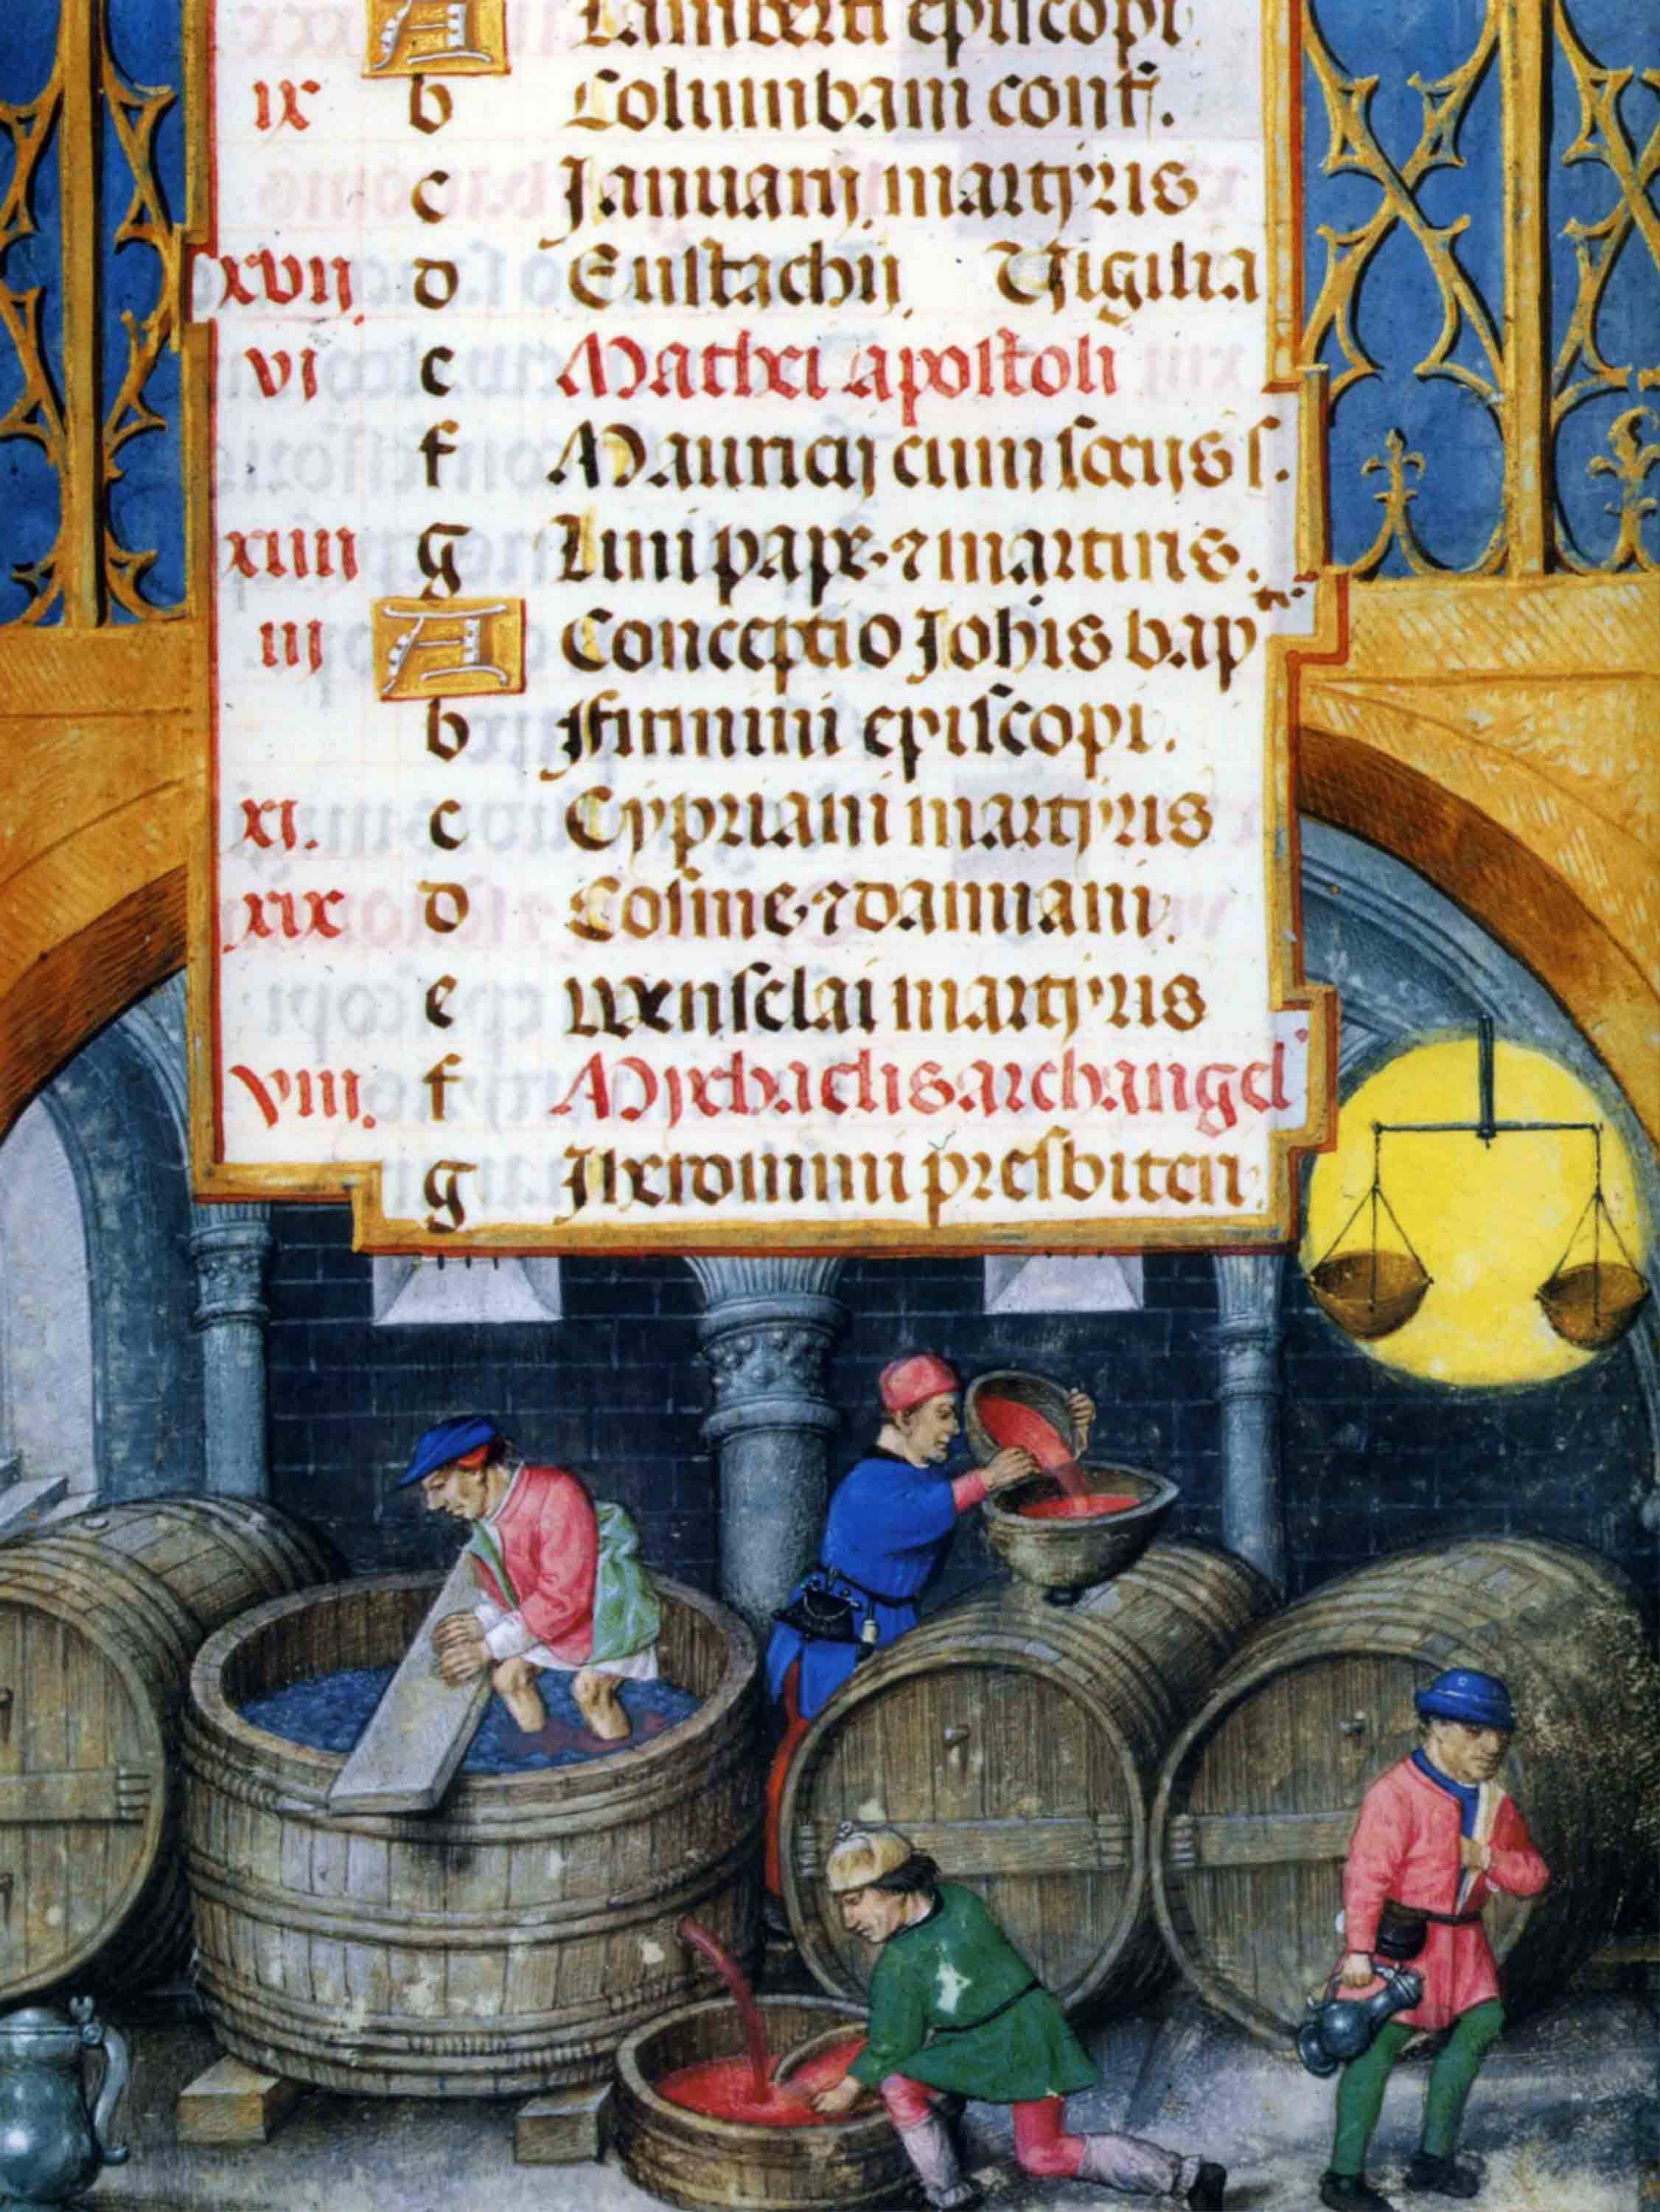 A Lamberti episcopi
ix b Columbani conf.
c Januarij martyris
xvij d Eustachij Vigilia
vi e Mathei apostoli
f Mauricij cum socijs s.
xiiii g Lini pape ⁊ martiris.
iij A Conceptio Johis bap tis
b Firmini episcopi.
xi. c Cypriani martyris
xix d Cosme ⁊ damiani.
e Wensclai martyris
viii. f Mychaelis archangel
g Iheronimi presbiteri